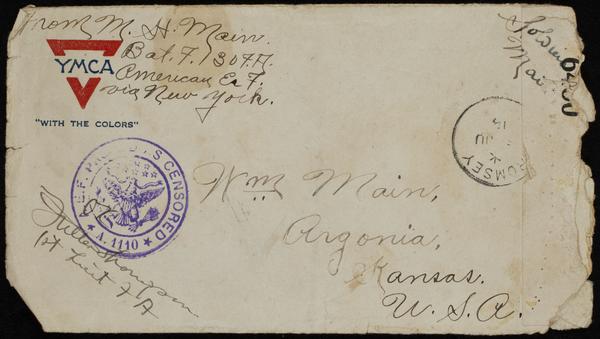 From M. H. Main.
Bat. F. 130 F.A.
American Ex F.
via New York.
Soldiers
Mail
YMCA
"WITH THE COLORS"
A.E.F. PASSED AS CENSORED
A. 1110
ROMSEY
JU
Wm Main,
Argonia,
Kansas.
U.S.A.
1st Lieut F A